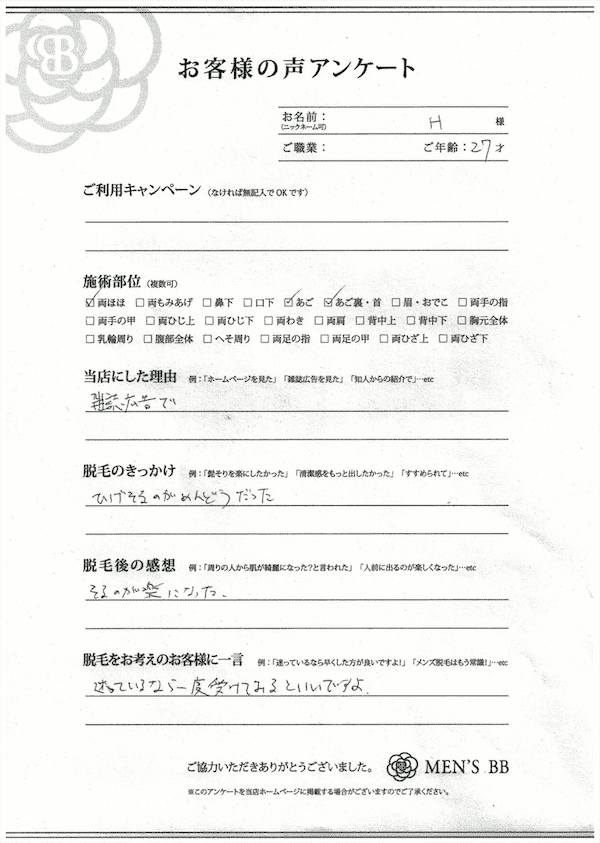 BB
お客様の声アンケート
お名前: H 様
(ニックネーム可)
ご職業: ご年齢:27才
ご利用キャンペーン (なければ無記入でOKです)
施術部位 (複数可)
☑両ほほ □両もみあげ □鼻下 □口下 ☑あご ☑あご裏・首 □眉・おでこ □両手の指
□両手の甲 □両ひじ上 □両ひじ下 □両わき □両肩 □背中上 □背中下 □胸元全体
□乳輪周り □腹部全体 □へそ周り □両足の指 □両足の甲 □両ひざ上 □両ひざ下
当店にした理由 例:「ホームページを見た」「雑誌広告を見た」「知人からの紹介で」…etc
雑誌広告で
脱毛のきっかけ 例:「髭そりを楽にしたかった」「清潔感をもっと出したかった」「すすめられて」…etc
ひげそるのがめんどうだった
脱毛後の感想 例:「周りの人から肌が綺麗になった?と言われた」「人前に出るのが楽しくなった」…etc
そるのが楽になった.
脱毛をお考えのお客様に一言 例:「迷っているなら早くした方が良いですよ!」「メンズ脱毛はもう常識!」…etc
迷っているなら一度受けてみるといいですよ.
ご協力いただきありがとうございました。 MEN'S BB
※このアンケートを当店ホームページに掲載する場合がございますのでご了承ください。